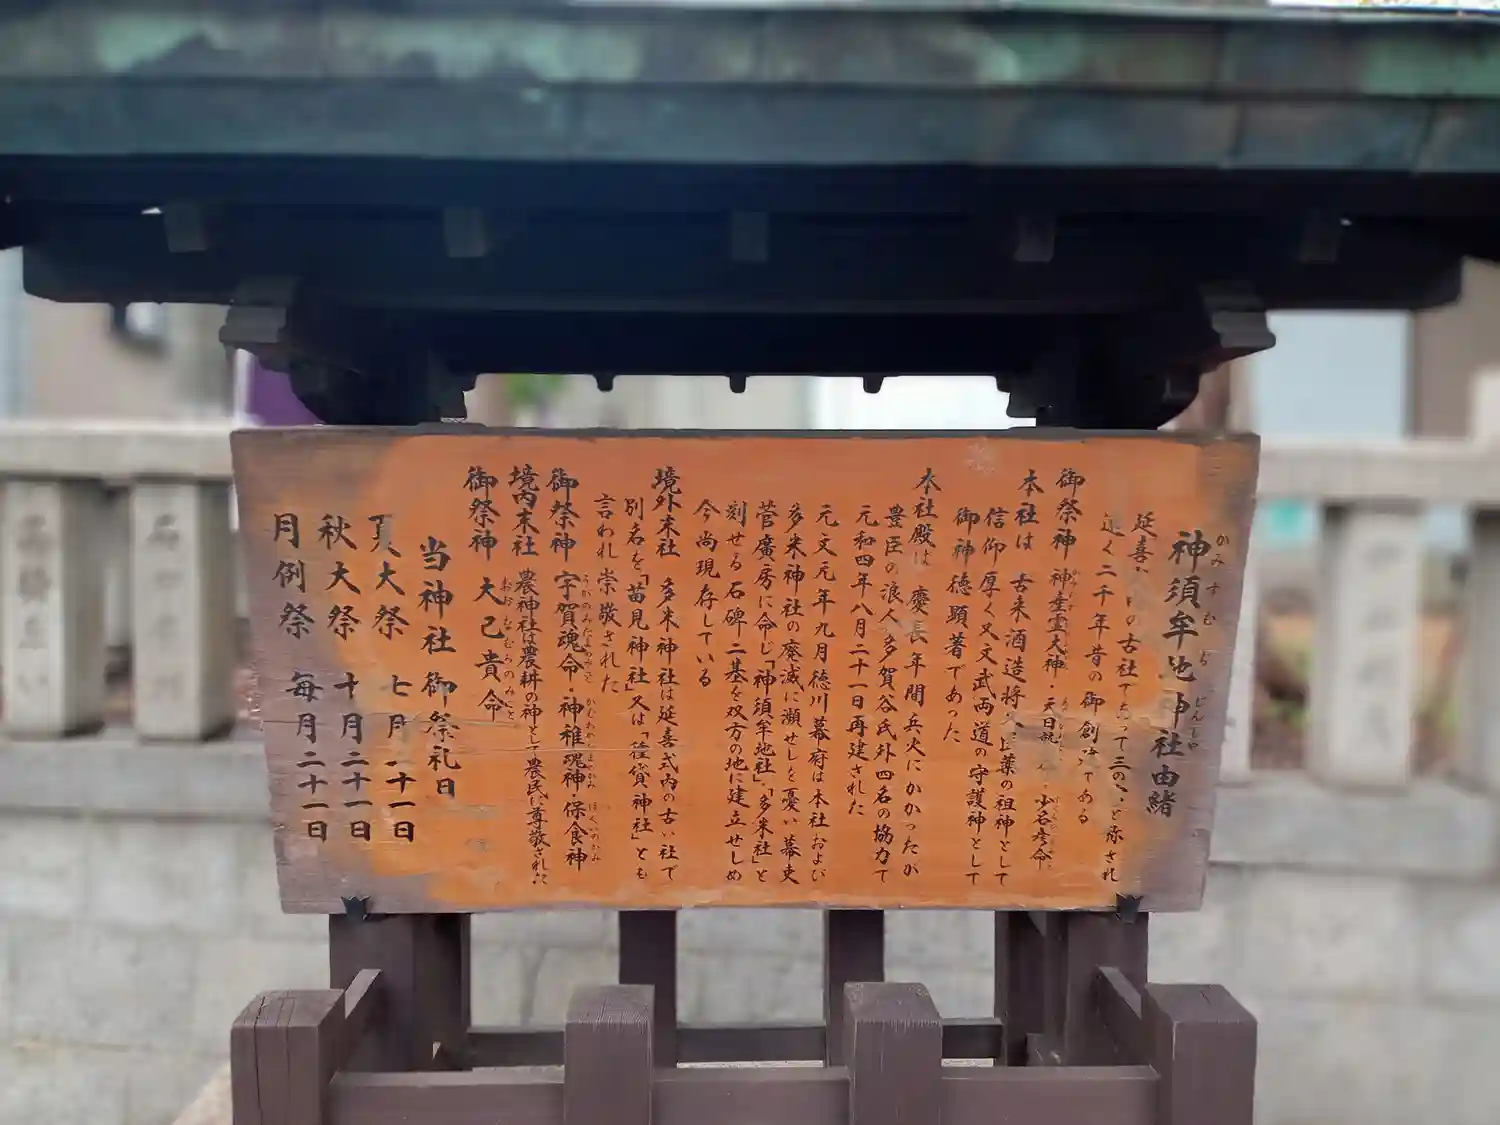 神須牟地神社由緒
かみすむぢじんしゃ
延喜 内の古社で って三の と称され
遠く二千年昔の御創 である
御祭神 神産霊大神・天日 ・少名彦命
本社は 古来酒造 薬の祖神として
信仰厚く又文武両道の守護神として
御神徳顕著であった
本社殿は 慶長年間兵火にかかったが
豊臣の浪人多賀谷氏外四名の協力て
元和四年八月二十一日再建された
元文元年九月徳川幕府は本社および
多米神社の廃滅に瀕せしを憂い幕吏
菅廣房に命じ「神須牟地社」「多米社」と
刻せる石碑二基を双方の地に建立せしめ
今尚現存している
境外末社 多米神社は延喜式内の古い社で
別名を「苗見神社」又は「種貸神社」とも
言われ崇敬された
御祭神 宇賀魂命・神稚魂神・保食神
うがのみたまのみこと かむわかむすひのかみ ほくいのかみ
境内末社 農神社は農耕の神として農民に尊敬された
御祭神 大己貴命
おおなむちのみこと
当神社 御祭礼日
夏大祭 七月 十一日
秋大祭 十月二十一日
月例祭 毎月二十一日